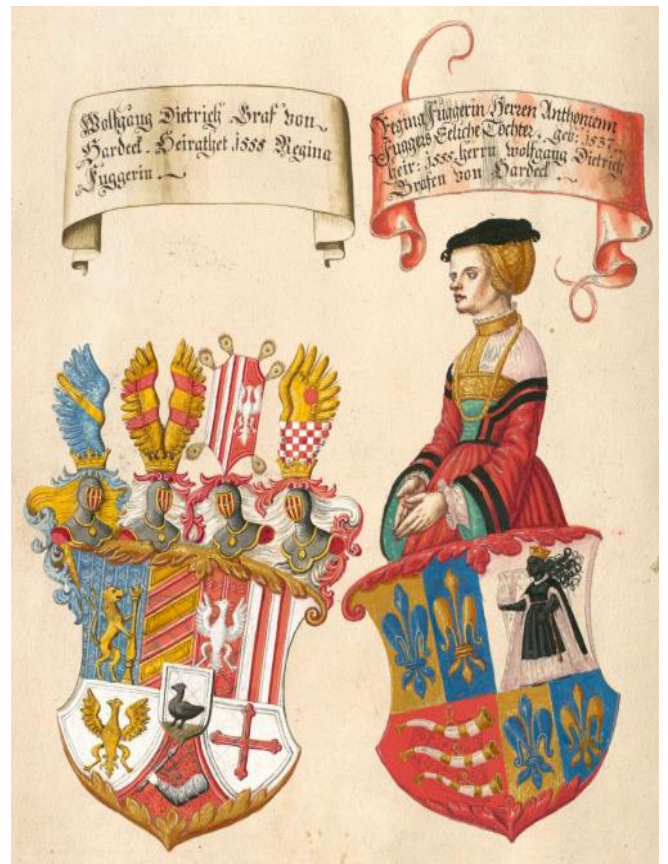 Wolfgang Dietrich Graf von
Hardeck. Heirathet 1555 Regina
Fuggerin.
Regina Fuggerin Herren Anthonienn
Fuggers Eeliche Tochter. geb: 1537.
heir: 1555. herrn Wolfgang Dietrich
Grafen von Hardeck.